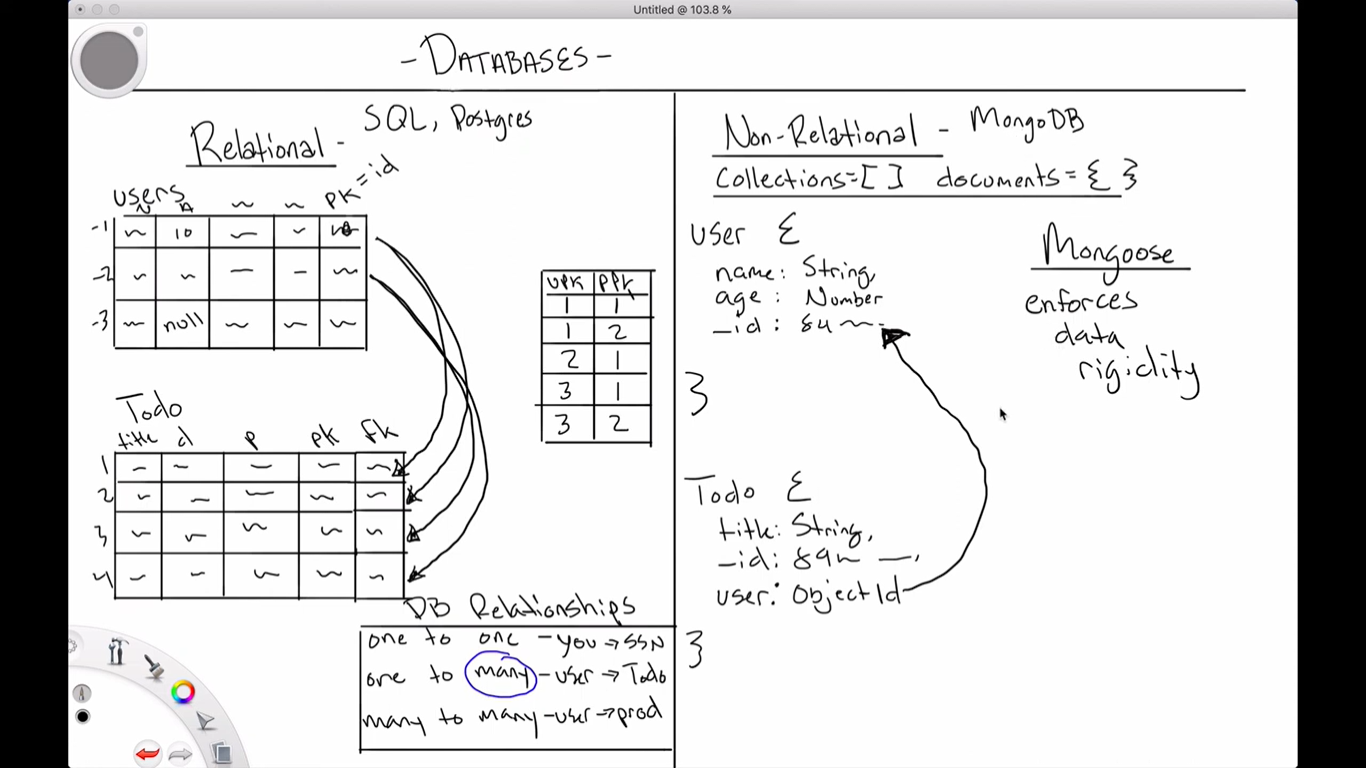 Untitled @ 103.8 %
- DATABASES -
Relational - SQL, Postgres
users
N A PK = id
-1 10
-2
-3 null
UPK PPK
1 1
1 2
2 1
3 1
3 2
Todo
title d P pk fk
1
2
3
4
DB Relationships
one to one - you → SSN
one to many - user → Todo
many to many - user → prod
Non-Relational - MongoDB
Collections = [ ] documents = { }
user {
name: String,
age: Number
_id: 84
}
Mongoose
enforces
data
rigidity
Todo {
title: String,
_id: 89
user: ObjectId
}